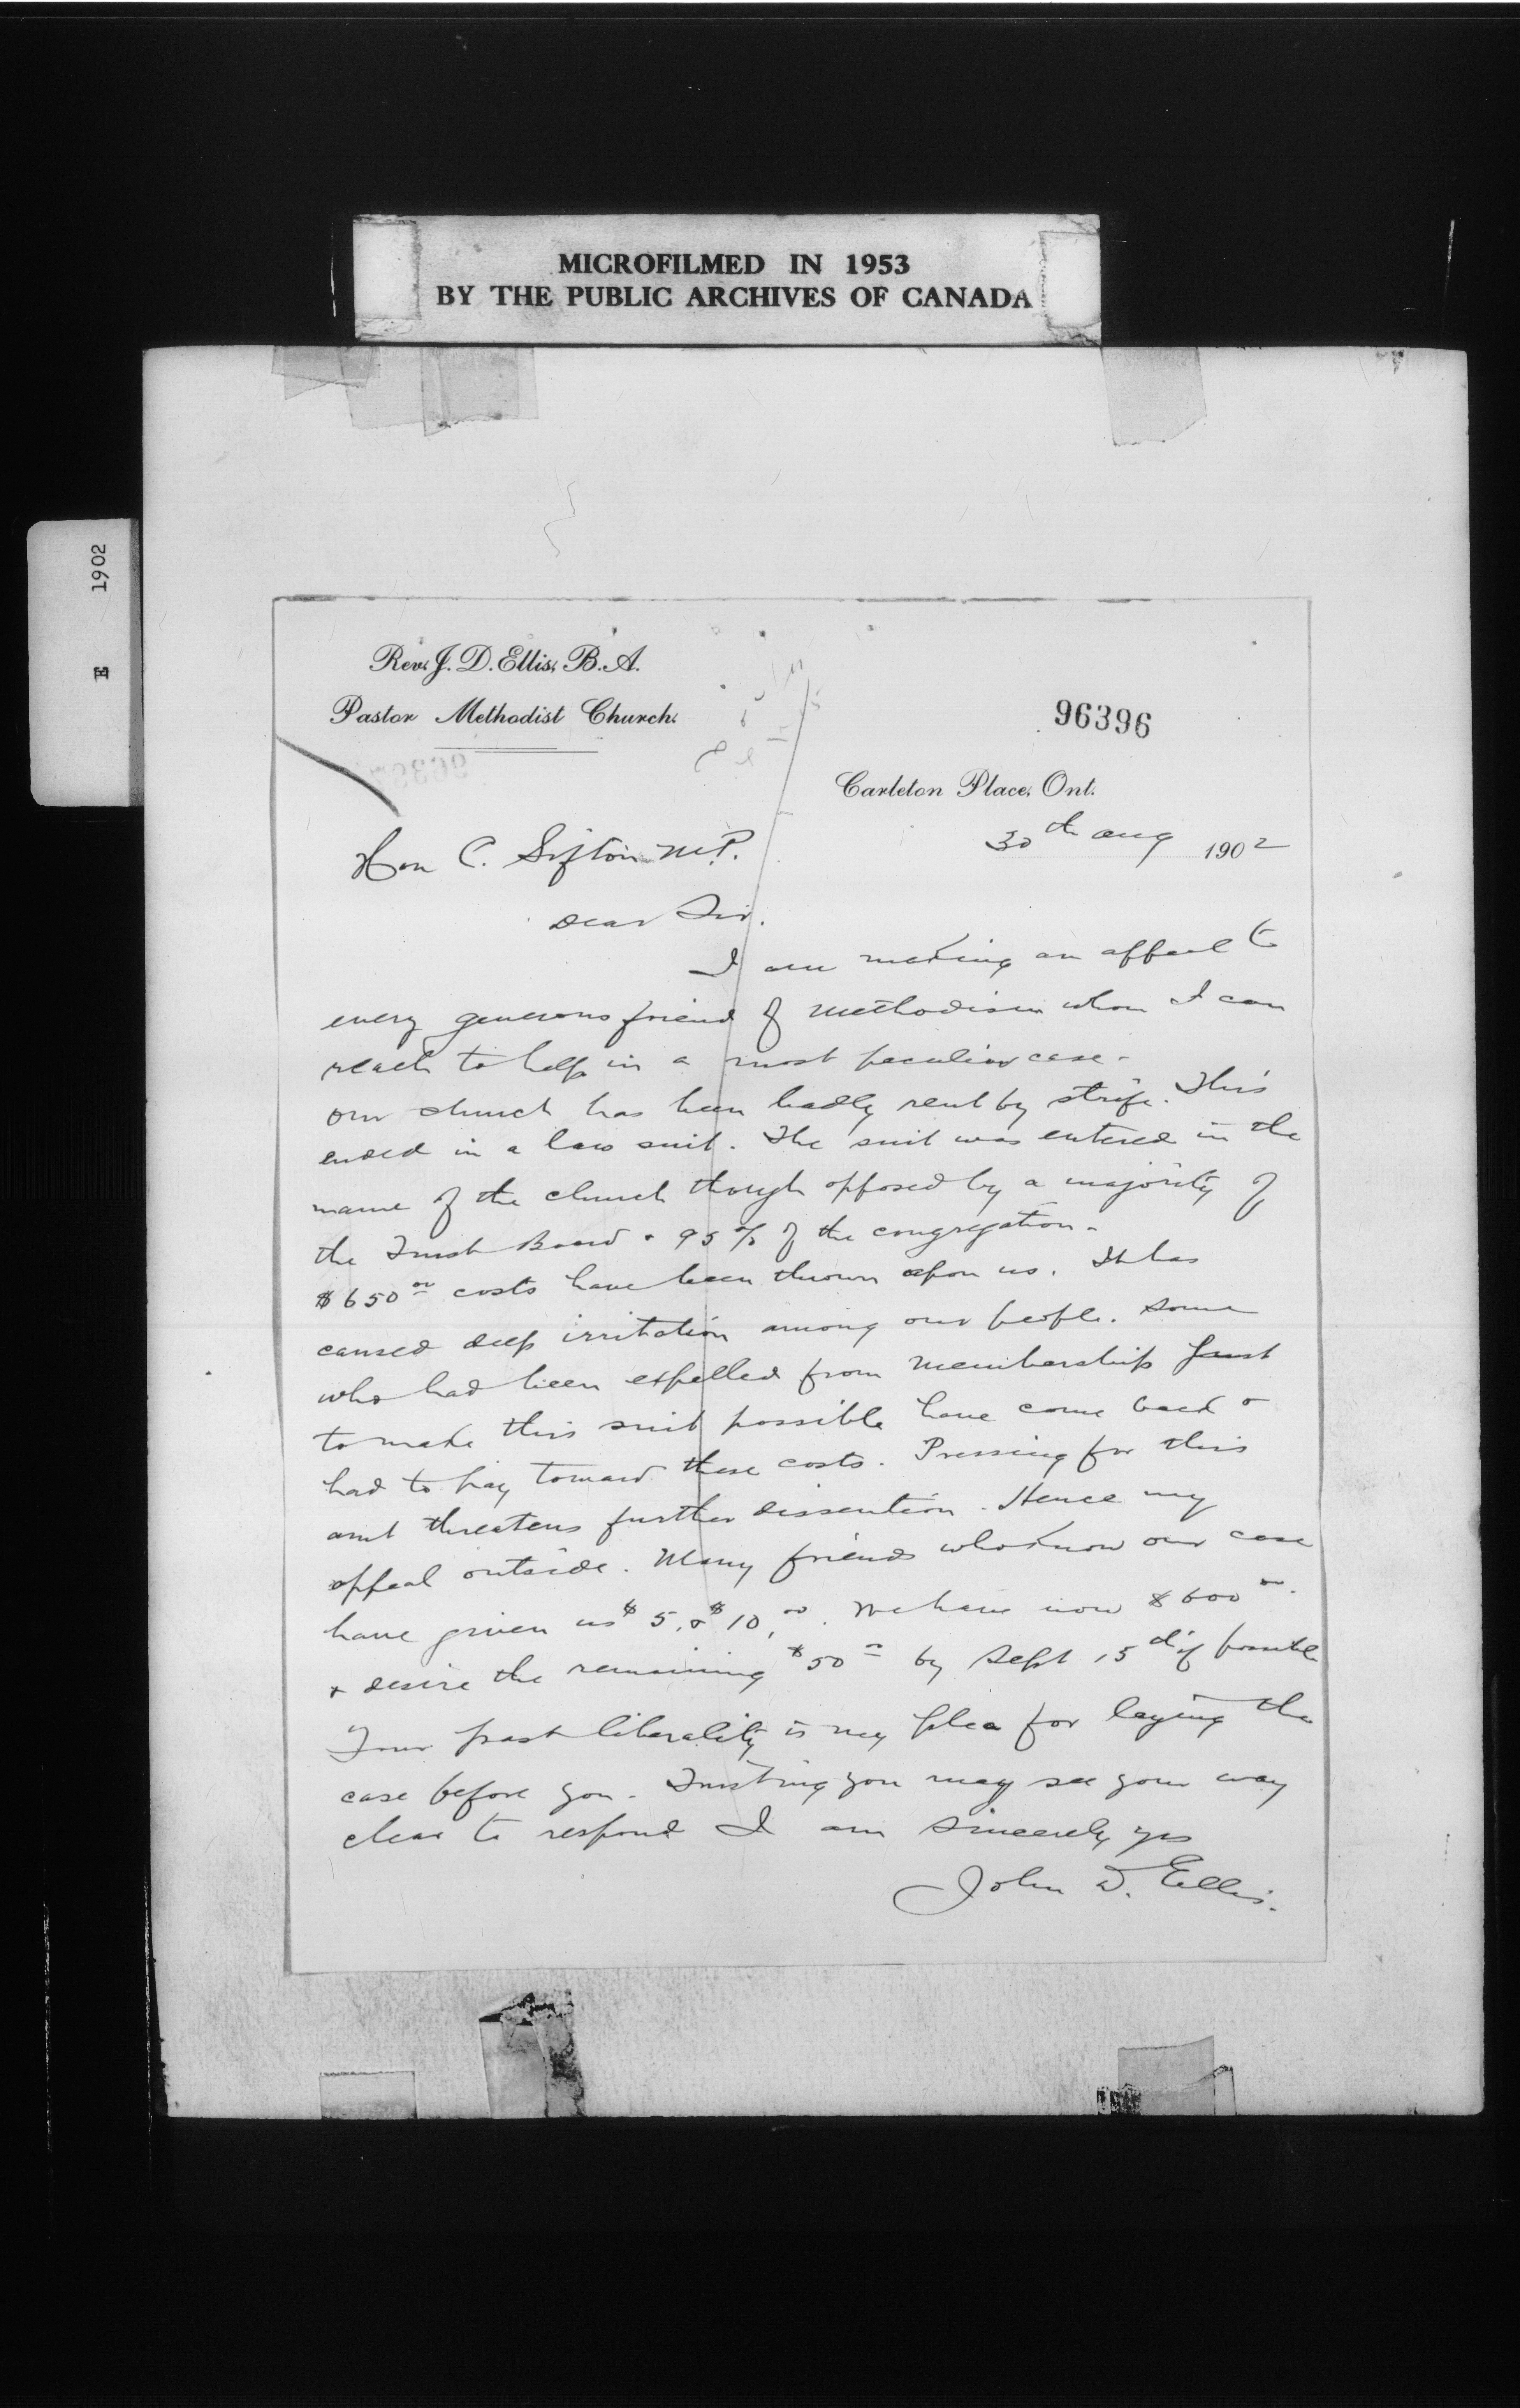 MICROFILMED IN 1953
BY THE PUBLIC ARCHIVES OF CANADA
E 1902
Rev. J. D. Ellis, B. A.
Pastor Methodist Church.
96396
Carleton Place, Ont.
30th Aug 1902
Hon C. Sifton M.P.
Dear Sir.
I am making an appeal to
every generous friend of Methodism whom I can
reach to help in a most peculiar case.
Our church has been badly rent by strife. This
ended in a law suit. The suit was entered in the
name of the church though opposed by a majority of
the Trust Board & 95% of the congregation.
$650 00 costs have been thrown upon us. It has
caused deep irritation among our people. Some
who had been expelled from membership just
to make this suit possible have come back &
had to pay toward these costs. Pressing for this
amt threatens further dissention. Hence my
appeal outside. Many friends who know our case
have given us $5, & $10, 00. We have now $600 00.
& desire the remaining $50 00 by Sept 15th if possible
Your past liberality is my plea for laying the
case before you. Trusting you may see your way
clear to respond I am Sincerely yrs
John D. Ellis.